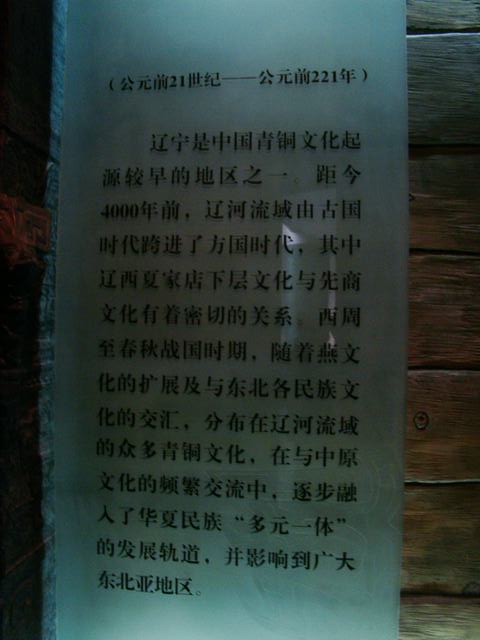 （公元前21世纪——公元前221年）
辽宁是中国青铜文化起
源较早的地区之一。距今
4000年前，辽河流域由古国
时代跨进了方国时代，其中
辽西夏家店下层文化与先商
文化有着密切的关系。西周
至春秋战国时期，随着燕文
化的扩展及与东北各民族文
化的交汇，分布在辽河流域
的众多青铜文化，在与中原
文化的频繁交流中，逐步融
入了华夏民族“多元一体”
的发展轨道，并影响到广大
东北亚地区。